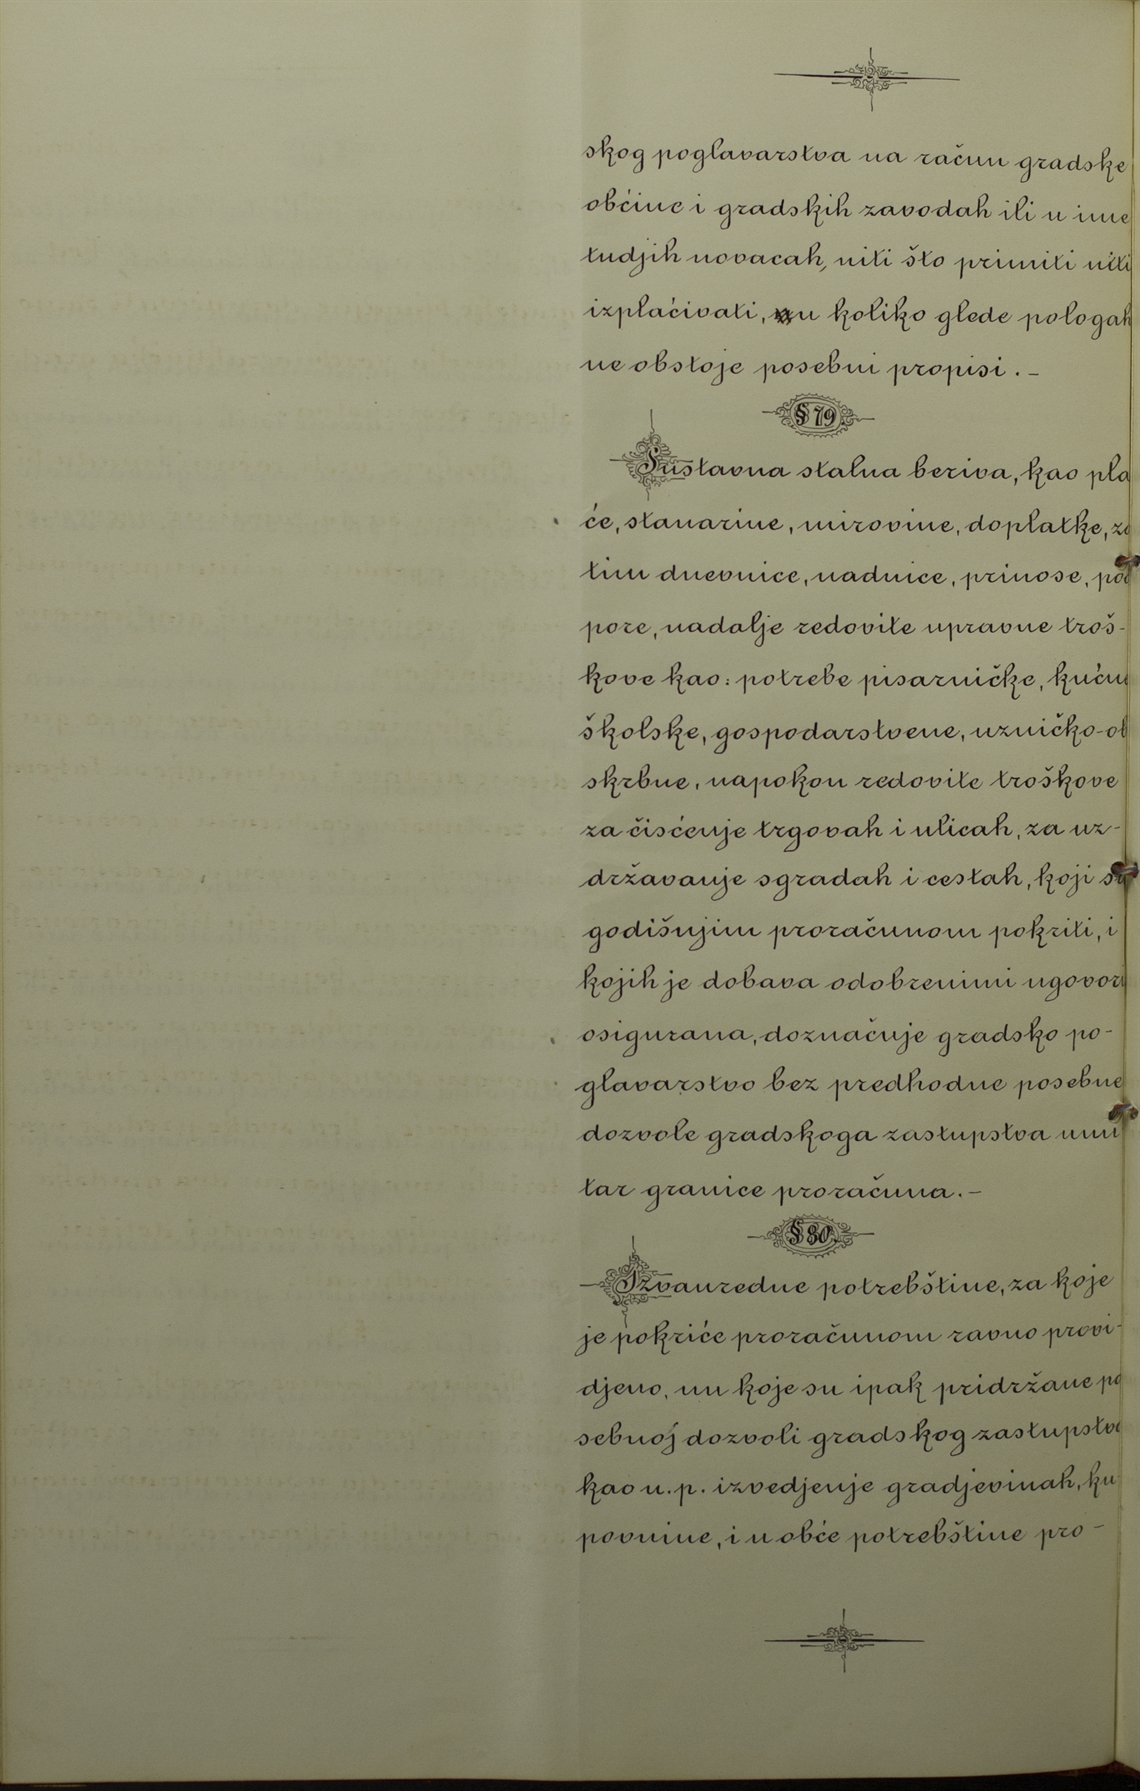 skog poglavarstva na račun gradske
občine i gradskih zavodah ili u ime
tudjih novacah, niti što primiti niti
izplaćivati, u koliko glede pologah
ne obstoje posebni propisi. –
§ 79.
Sustavna stalna beriva, kao pla
će, stanarine, mirovine, doplatke, za
tim dnevnice, nadnice, prinose, pod
pore, nadalje redovite upravne troš-
kove kao: potrebe pisarničke, kućn
školske, gospodarstvene, uzničko-ob
skrbne, napokon redovite troškove
za čisćenje trgovah i ulicah, za uz-
državanje sgradah i cestah, koji su
godišnjim proračunom pokriti, i
kojih je dobava odobrenimi ugovori
osigurana, doznačuje gradsko po-
glavarstvo bez predhodne posebne
dozvole gradskoga zastupstva unu
tar granice proračuna. –
§ 80.
Izvanredne potrebštine, za koje
je pokriće proračunom ravno provi-
djeno, nu koje su ipak pridržane po
sebnoj dozvoli gradskog zastupstva
kao n. p. izvedjenje gradjevinah, ku
povnine, i u obće potrebštine pro-